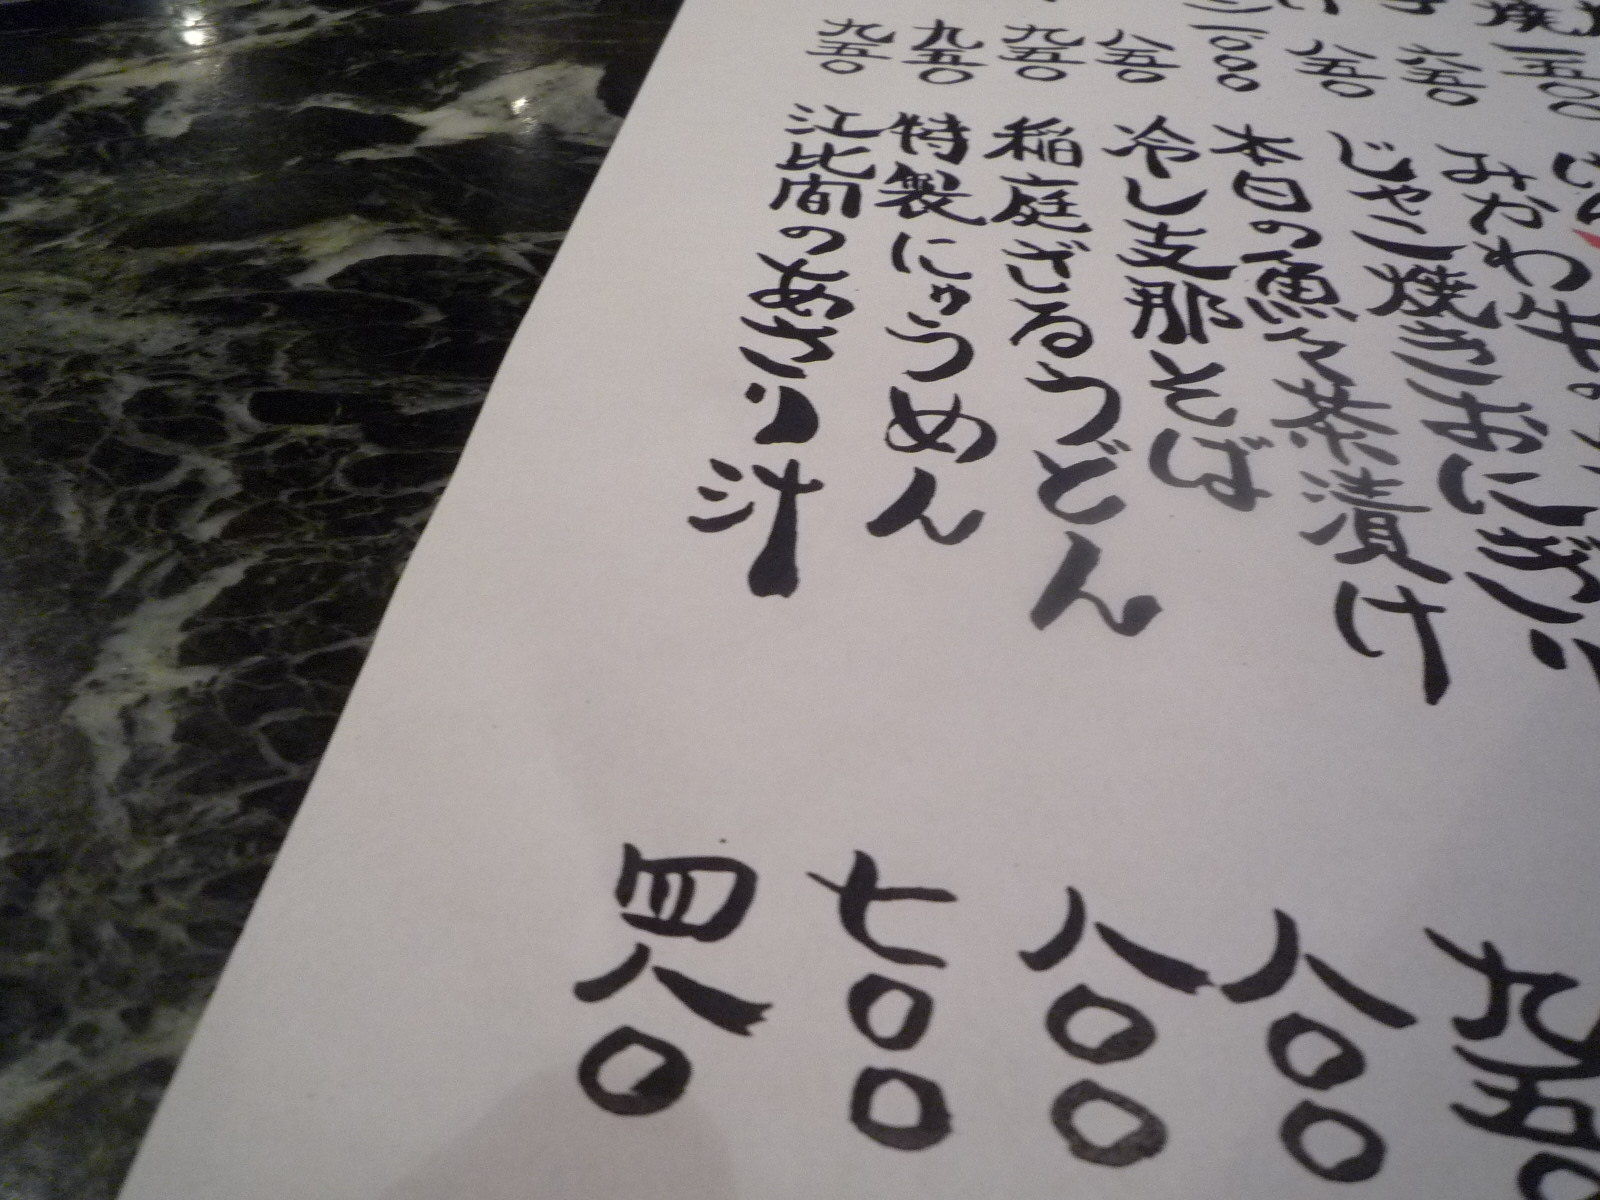 じゃこ焼きおにぎり
本日の魚々茶漬け 九五〇
冷し支那そば 八〇〇
稲庭ざるうどん 八〇〇
特製にゅうめん 七〇〇
江比間のあさり汁 四八〇
一五〇〇
六五〇
八五〇
一〇〇〇
八五〇
九五〇
九五〇
九五〇